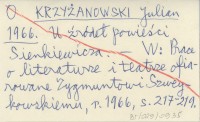 O KRZYŻANOWSKI Julian
1966. U źródeł powieści
Sienkiewicza. — W: Prace
o literaturze i teatrze ofia-
rowane Zygmuntowi Szwey-
kowskiemu, r. 1966, s. 217-219.